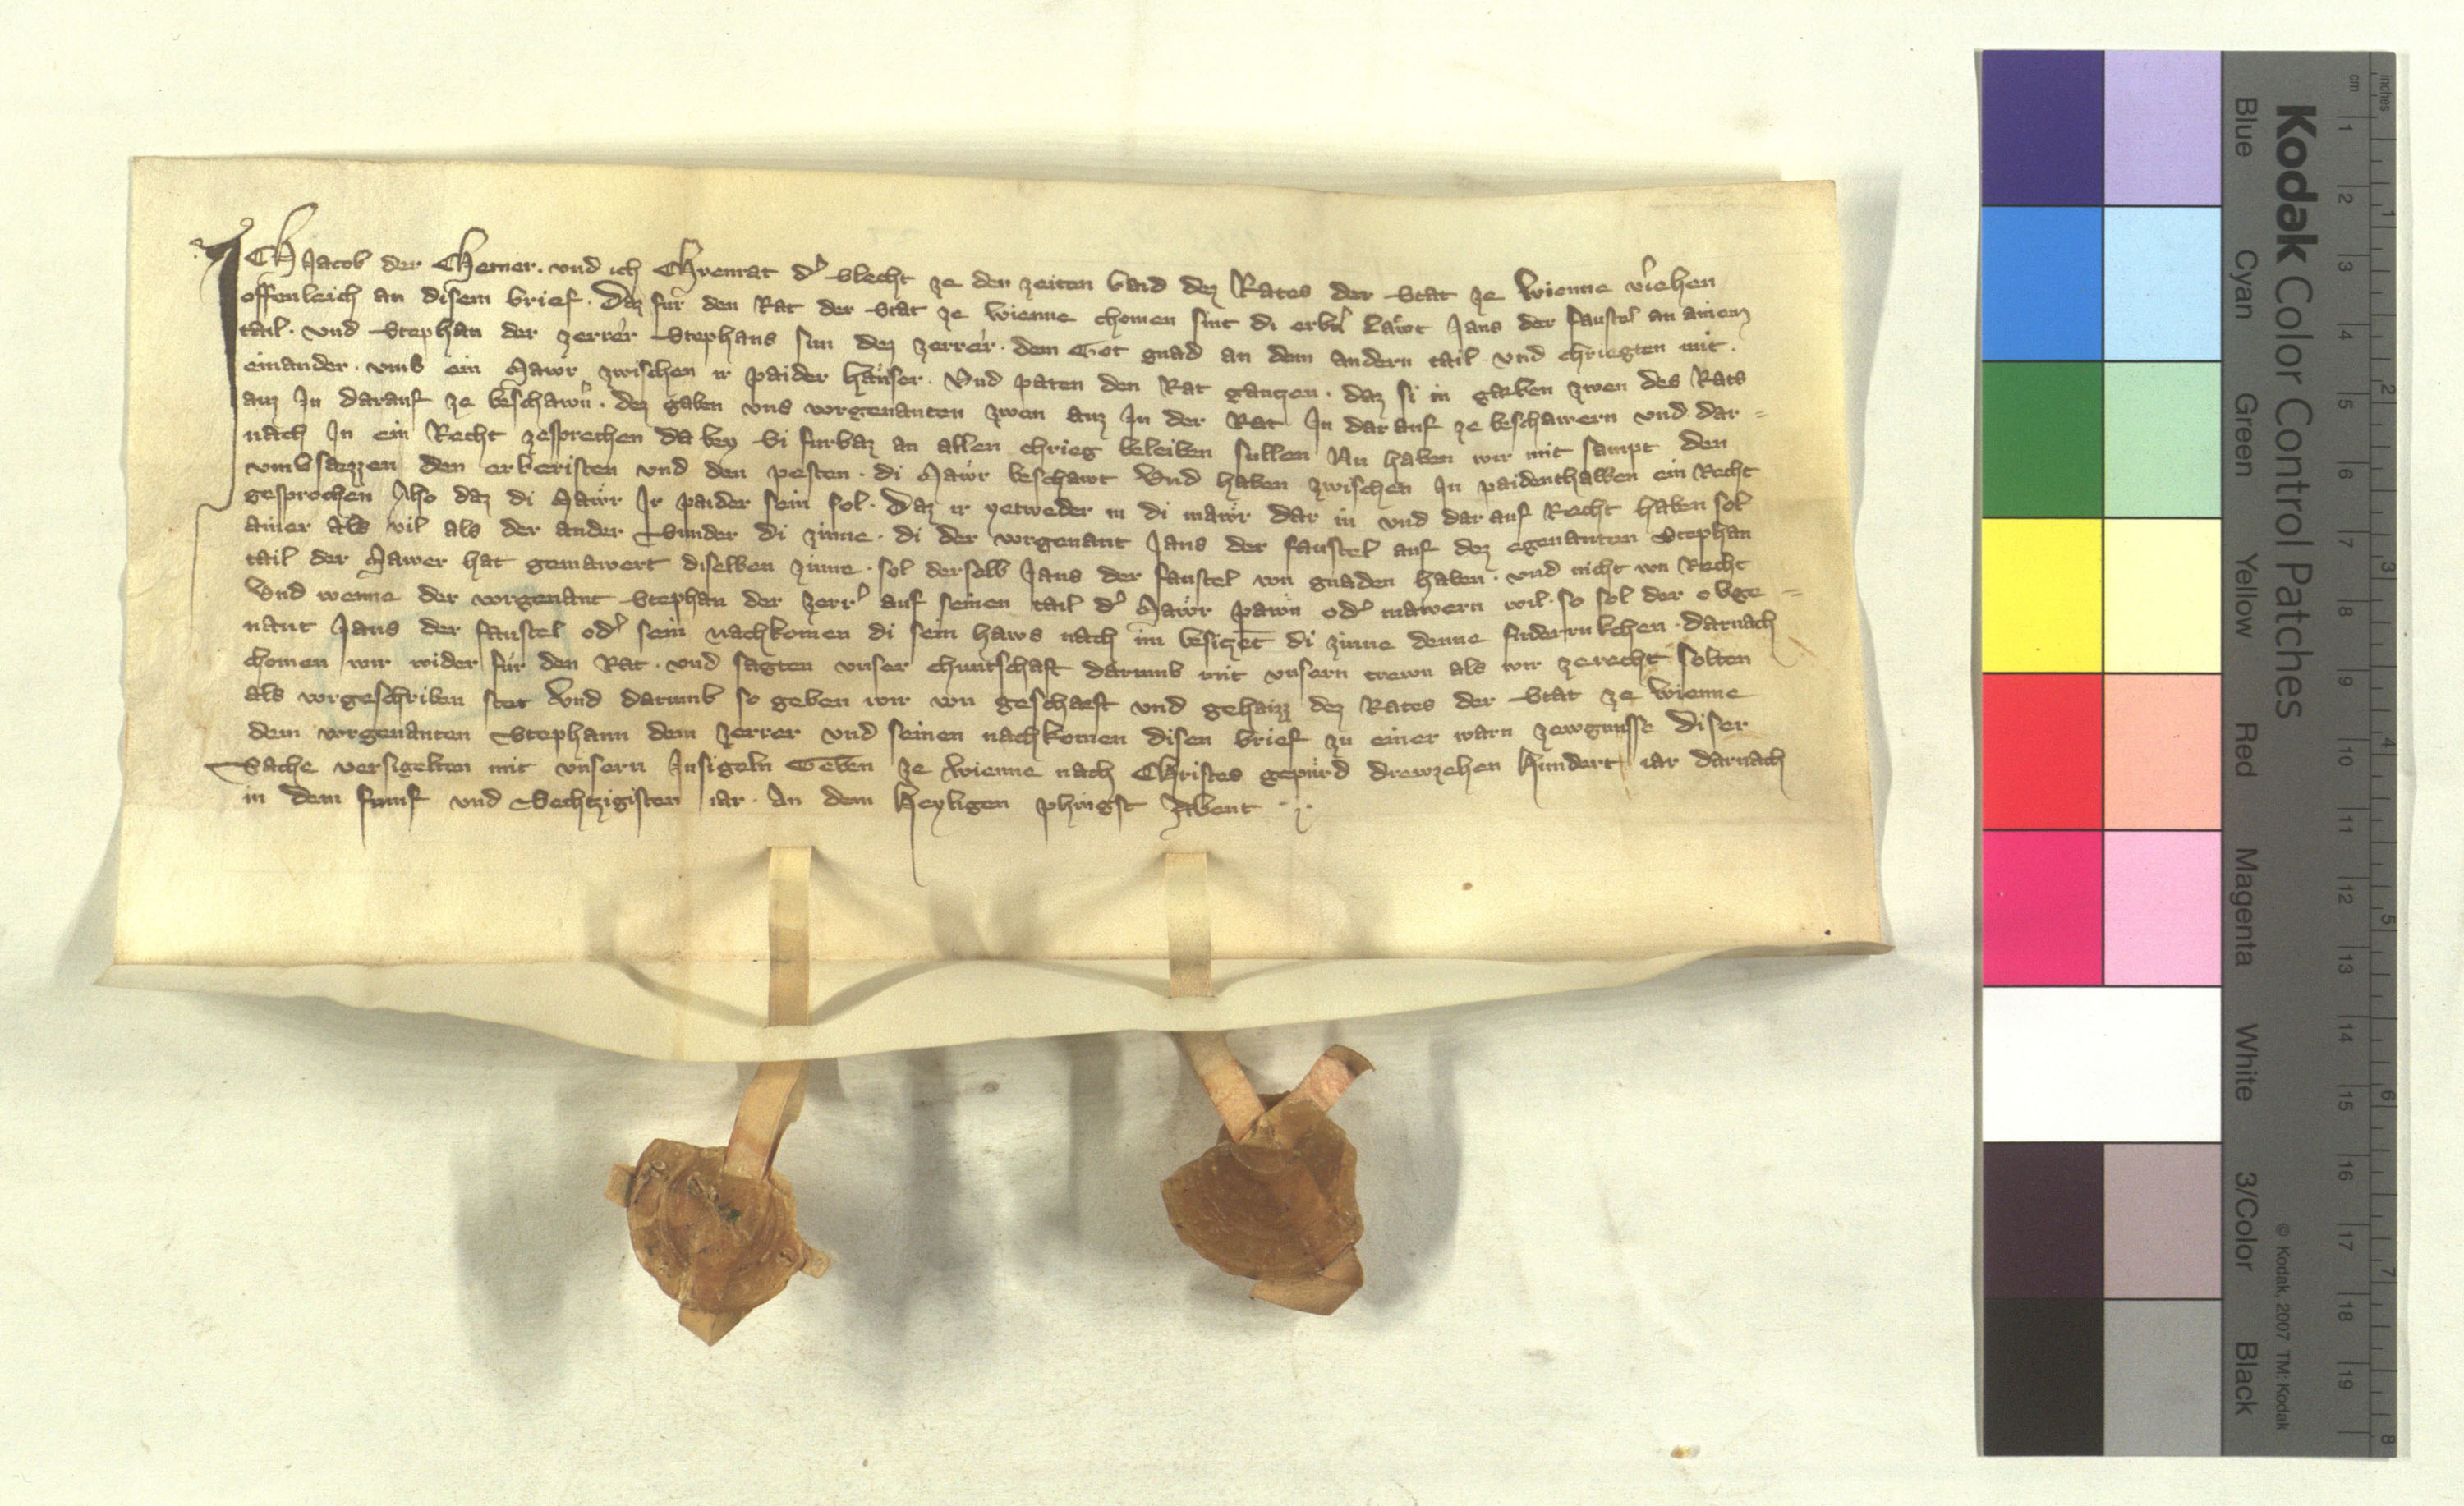 ICH Jacob der CHemer. vnd ich CHvenrat d' Slecht ze den zeiten baid dez Rates der Stat ze Wienne v'iehen
offenleich an disem brief. Daz für den Rat der Stat ze Wienne chomen sint di erbn' Läwt Jans der Faustel an ainem
tail. vnd Stephan der Zerrer Stephans sun dez Zerrer. dem Got gnad an dem andern tail. vnd chriegten mit.
einander. vmb ein Mawr zwischen ir paider häuser. Vnd paten den Rat gangen. daz si in gaeben zwen des Rats
auz In darauf ze beschawn. dez gaben vns vorgenanten zwen auz In der Rat In darauf ze beschawern vnd dar=
nach In ein Recht zesprechen da bey Si furbaz an allen chrieg beleiben sullen Nu haben wir mit sampt den
vmbsaezzen den erberisten vnd den pesten. di Mawr beschawt Vnd haben zwischen In paidenthalben ein Recht
gesprochen Also daz di Mawr Ir paider sein sol. Daz ir yetweder in di mawr dar in vnd dar auf Recht haben sol
ainer als vil als der ander Sunder di zinne. di der vorgenant Jans der Faustel auf dez egenanten Stephan
tail der Mawer hat gemawert diselben zinne. sol derselb Jans der Faustel von gnaden haben. vnd nicht von Recht
Vnd wenne der vorgenant Stephan der Zerr' auf seinen tail d' Mawr pawn od' mawern wil. so sol der obge=
nant Jans der Faustel od' sein nachkomen di sein haws nach im besiczet di zinne denne furderrukchen. Darnach
chomen wir wider für den Rat. vnd sagten vnser chuntschaft darumb mit vnsern trewn als wir zerecht solten
als vorgeschriben stet Vnd darumb so geben wir von geschaeft vnd gehaizz dez Rates der Stat ze Wienne
dem vorgenanten Stephann dem Zerrer vnd seinen nachkomen disen brief zu einer warn zewgnusse Diser
Sache versigelten mit vnsern Insigeln Geben ze Wienne nach CHristes gepürd drewzehen Hundert iar darnach
in dem Fümf vnd Sechtzigisten iar. An dem Heyligen phingst Abent
Kodak Color Control Patches
inches
cm
1 2 3 4 5 6 7 8 9 10 11 12 13 14 15 16 17 18 19
1 2 3 4 5 6 7 8
Blue Cyan Green Yellow Red Magenta White 3/Color Black
© Kodak, 2007 TM: Kodak